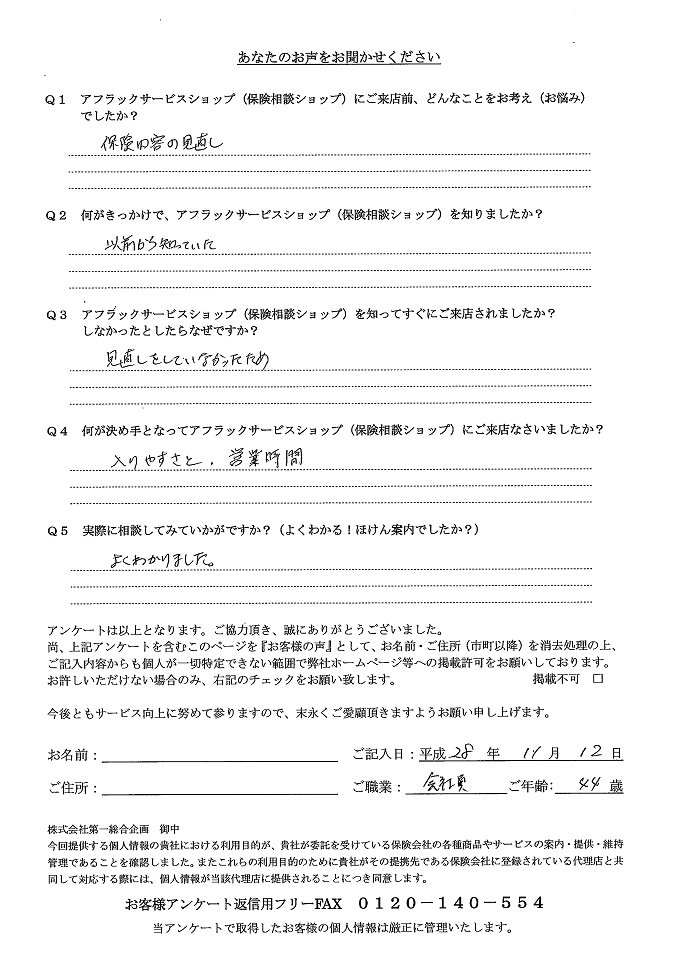 あなたのお声をお聞かせください
Q1 アフラックサービスショップ（保険相談ショップ）にご来店前、どんなことをお考え（お悩み）
でしたか？
保険内容の見直し
Q2 何がきっかけで、アフラックサービスショップ（保険相談ショップ）を知りましたか？
以前から知っていた
Q3 アフラックサービスショップ（保険相談ショップ）を知ってすぐにご来店されましたか？
しなかったとしたらなぜですか？
見直しをしていなかったため
Q4 何が決め手となってアフラックサービスショップ（保険相談ショップ）にご来店なさいましたか？
入りやすさと、営業時間
Q5 実際に相談してみていかがですか？（よくわかる！ほけん案内でしたか？）
よくわかりました。
アンケートは以上となります。ご協力頂き、誠にありがとうございました。
尚、上記アンケートを含むこのページを『お客様の声』として、お名前・ご住所（市町以降）を消去処理の上、
ご記入内容からも個人が一切特定できない範囲で弊社ホームページ等への掲載許可をお願いしております。
お許しいただけない場合のみ、右記のチェックをお願い致します。 掲載不可 □
今後ともサービス向上に努めて参りますので、末永くご愛顧頂きますようお願い申し上げます。
お名前： ご記入日：平成 28 年 11 月 12 日
ご住所： ご職業： 会社員 ご年齢： 44 歳
株式会社第一総合企画 御中
今回提供する個人情報の貴社における利用目的が、貴社が委託を受けている保険会社の各種商品やサービスの案内・提供・維持
管理であることを確認しました。またこれらの利用目的のために貴社がその提携先である保険会社に登録されている代理店と共
同して対応する際には、個人情報が当該代理店に提供されることにつき同意します。
お客様アンケート返信用フリーFAX 0120－140－554
当アンケートで取得したお客様の個人情報は厳正に管理いたします。